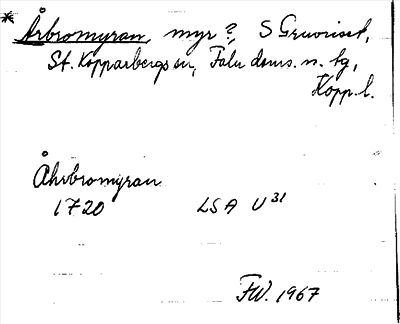 * Årbromyran myr?, S Gruvriset,
St. Kopparbergs sn, Falu doms. n. tg,
Kopp. l.
Åhrbromyran
1720 LSA U 31
FW. 1967